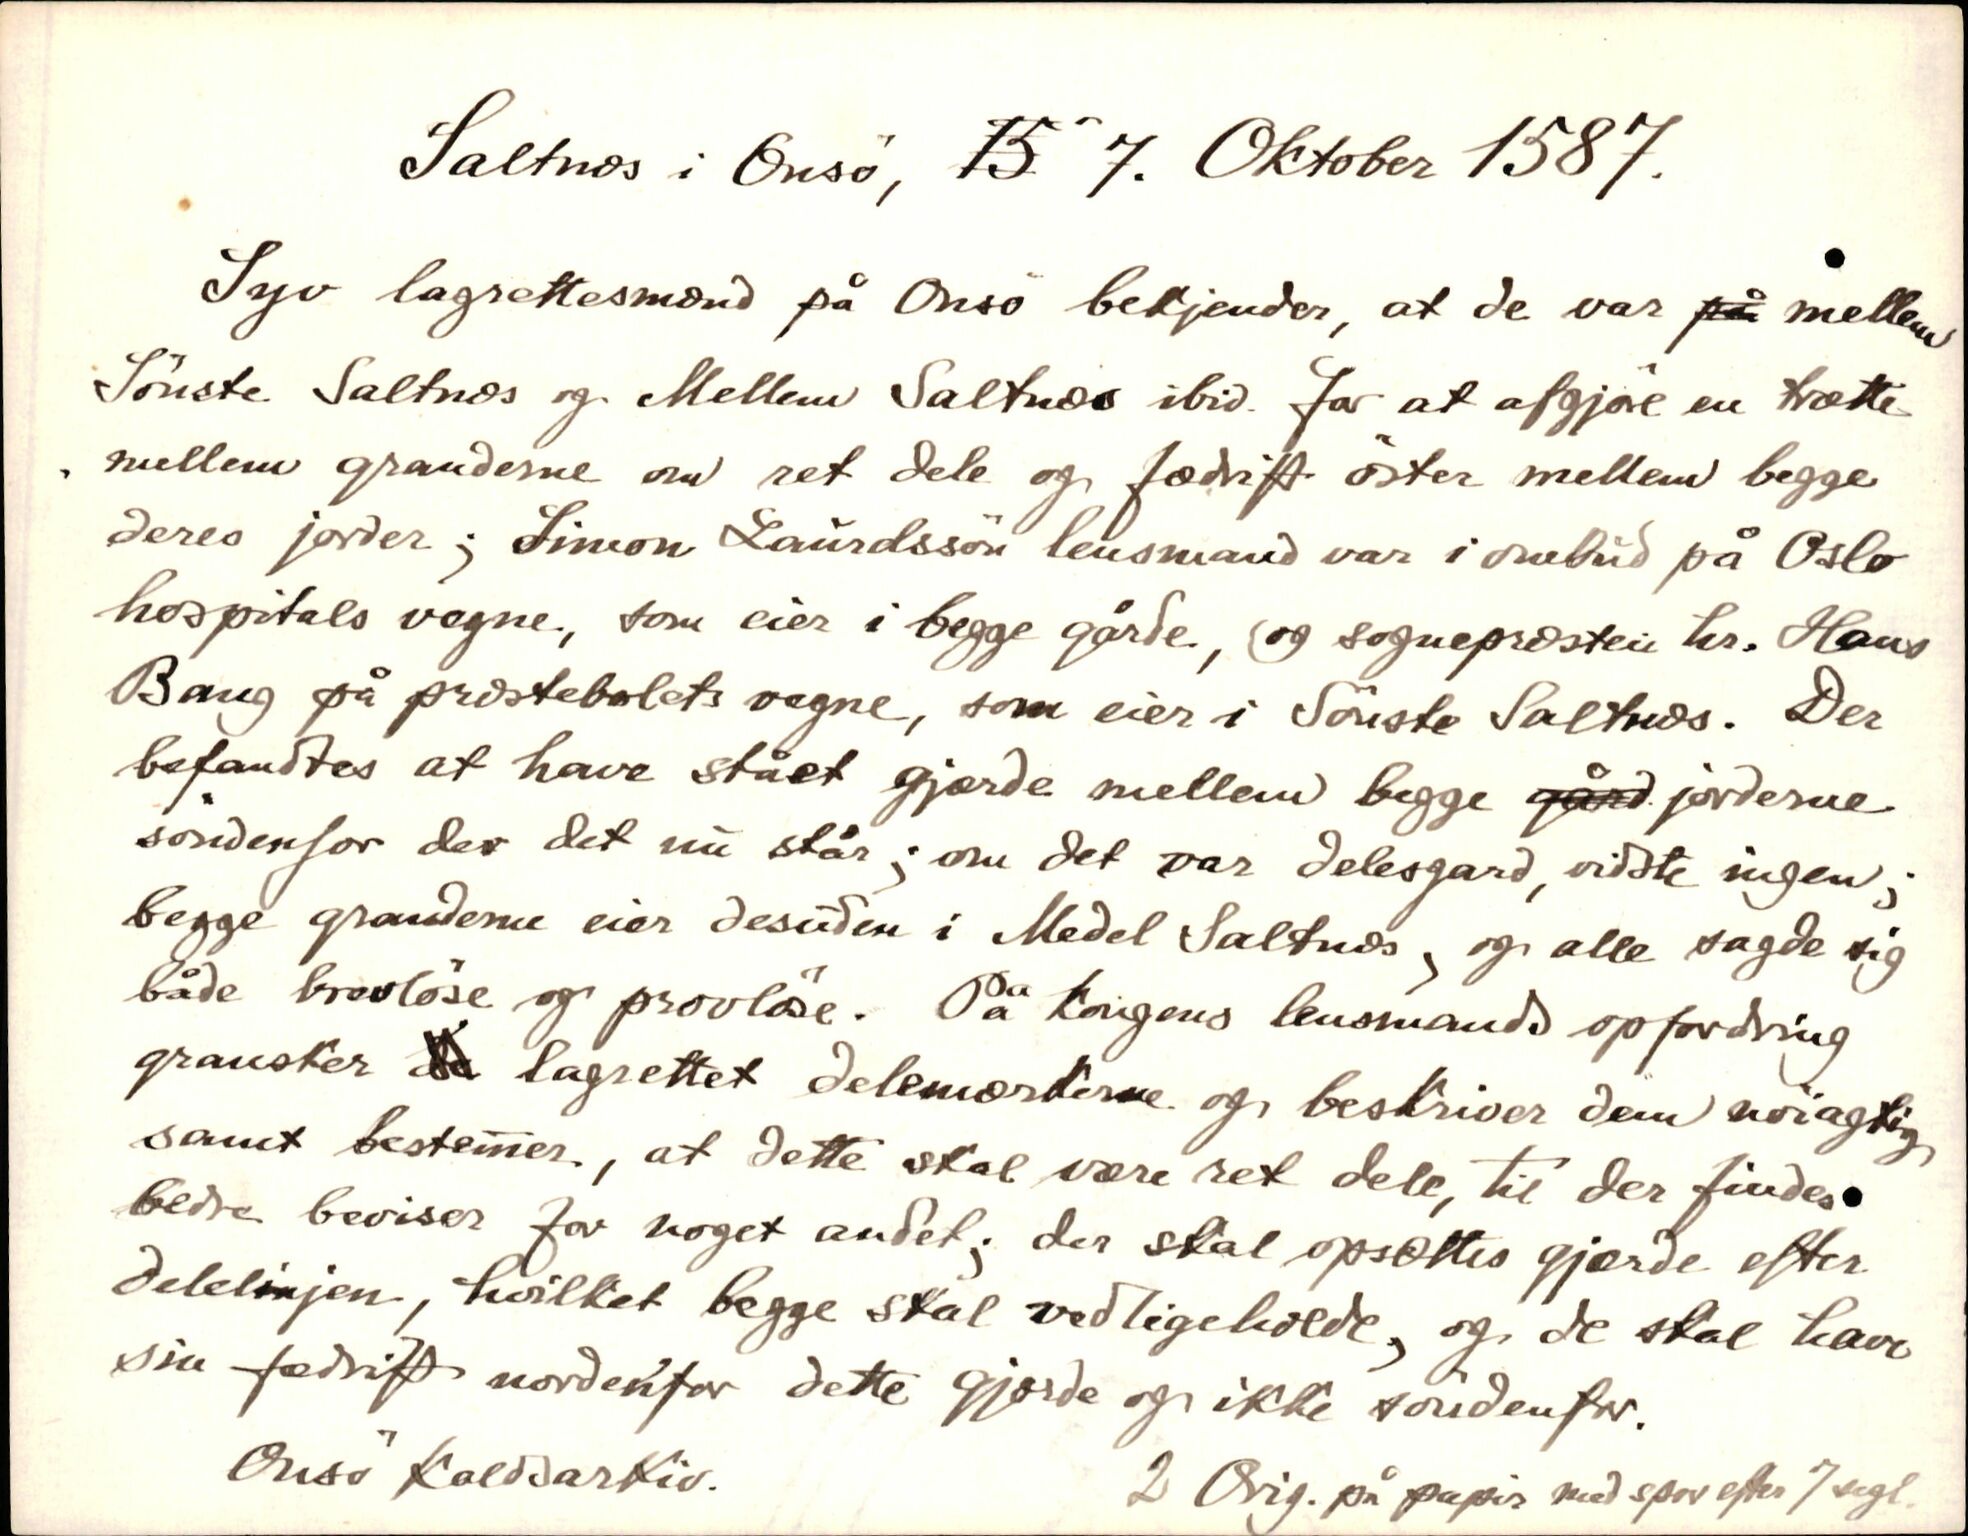 Saltnæs i Onsö, 15 7. Oktober 1587.
Syv lagrettesmænd på Onsö bekjender, at de var på mellem
Sönste Saltnæs og Mellem Saltnæs ibid. for at afgjöre en trætte
mellem granderne om ret dele og fædrift öster mellem begge
deres jorder; Simon Laurdssön lensmand var i ombud på Oslo
hospitals vegne, som eier i begge gårde, og sognepræsten hr. Hans
Bang på præstebolets vegne, som eier i Sönste Saltnæs. Der
befandtes at have stået gjærde mellem begge gård jorderne
söndenfor der det nu står; om det var delesgard, vidste ingen;
begge granderne eier desuden i Medel Saltnæs, og alle sagde sig
både brevlöse og provlöse. På kongens lensmands opfordring
gransker de lagrettet delemærkerne og beskriver dem nöiagtig
samt bestem̅er, at dette skal være ret dele, til der findes
bedre beviser for noget andet; der skal opsættes gjærde efter
delelinjen, hvilket begge skal vedligeholde, og de skal have
sin fædrift nordenfor dette gjærde og ikke söndenfor.
Onsö Kaldsarkiv.
2 Orig. på papir med spor efter 7 segl.